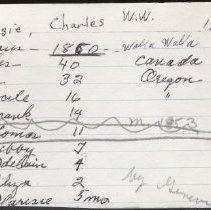 gie, Charles W.W. 1
1860 Walla Walla
40 Canada
32 Oregon
cile 16 "
rank 14 m 1853
omas 11
ibby 7
delain 4
liza 2 by
larisie 5 mo